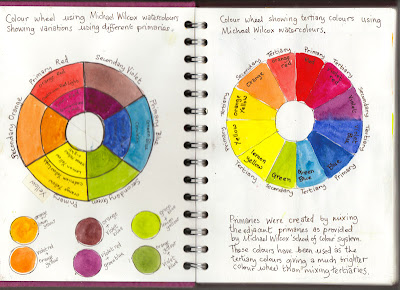 Colour wheel using Michael Wilcox watercolours
Showing variations using different primaries.
Primary Red
Secondary Violet
Primary Blue
Secondary Green
Primary Yellow
Secondary Orange
orange Red
Green Blue
orange yellow
orange yellow
violet red
green blue
Colour wheel showing tertiary colours using
Michael Wilcox watercolours.
Primary
Tertiary
Secondary
Tertiary
Primary
Tertiary
Secondary
Tertiary
Primary
Tertiary
Secondary
Tertiary
Red
orange red
orange
orange yellow
Yellow
lemon yellow
Green
Green Blue
Blue
Primaries were created by mixing
the adjacent primaries as provided
by Michael Wilcox' school of colour system.
These colours have been used as the
tertiary colours giving a much brighter
colour wheel than mixing tertiaries.